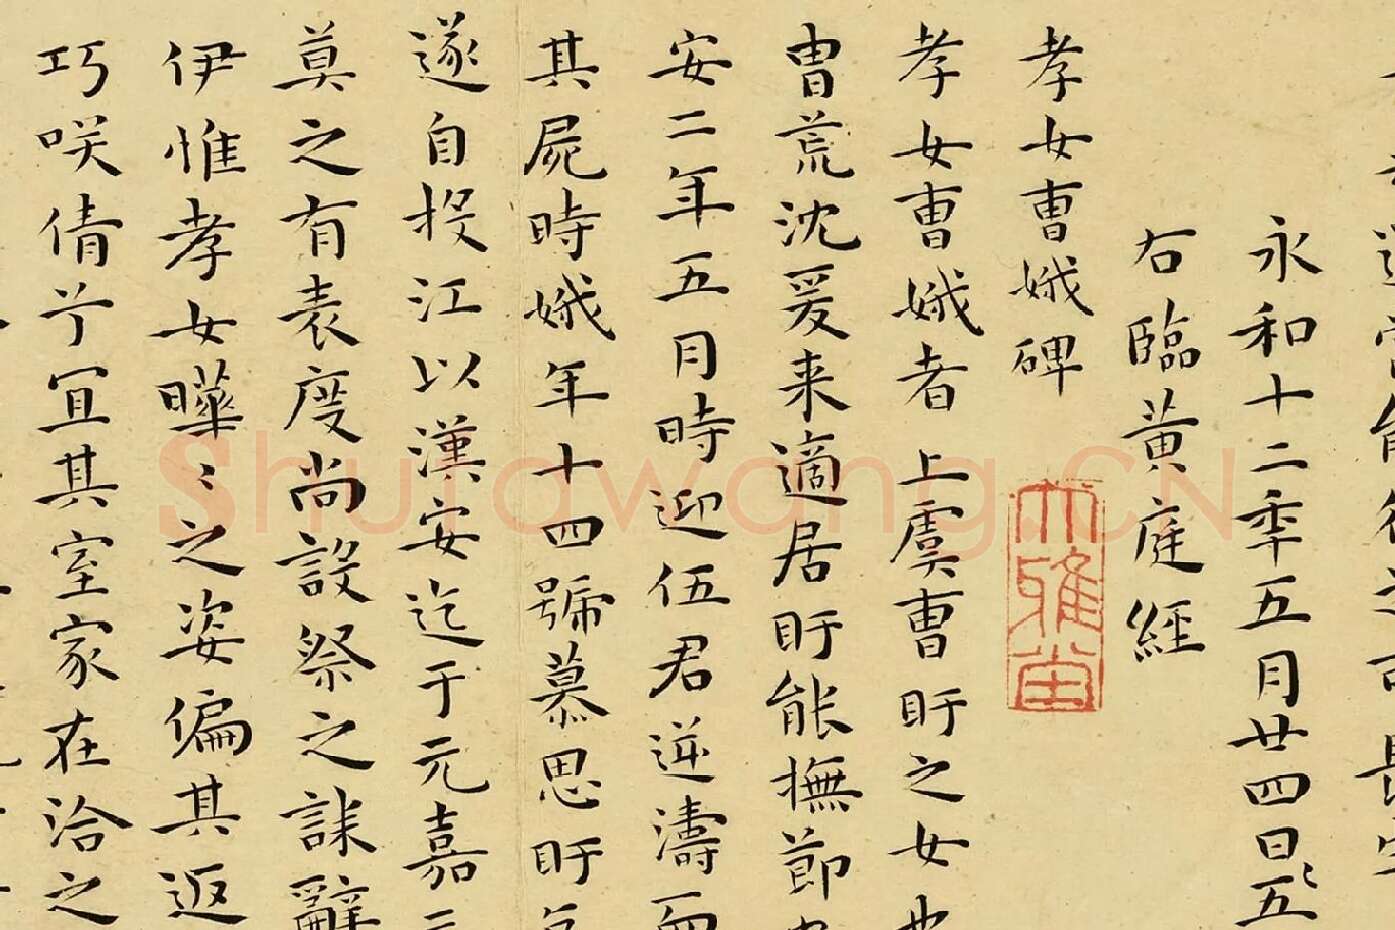 永和十二年五月廿四日五
右臨黃庭經
孝女曹娥碑
孝女曹娥者上虞曹盱之女也
胄荒沈爰来適居盱能撫節
安二年五月時迎伍君逆濤而
其屍時娥年十四號慕思盱
遂自投江以漢安迄于元嘉元
莫之有表度尚設祭之誄辭
伊惟孝女曄〻之姿偏其返
巧咲倩兮宜其室家在洽之
大雅堂
Shufawang.CN